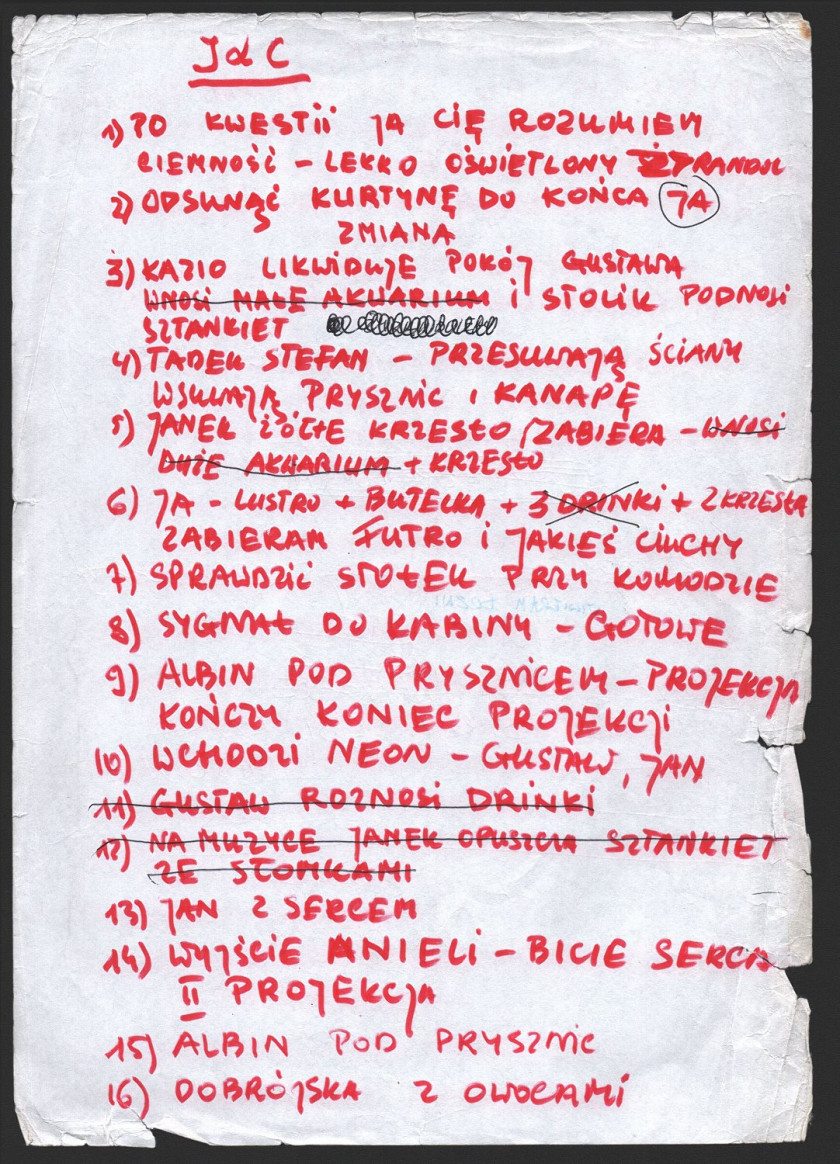 J d C
1) PO KWESTII JA CIĘ ROZUMIEM
CIEMNOŚĆ - LEKKO OŚWIETLONY
2) ODSUNĄĆ KURTYNĘ DO KOŃCA JA
ZMIANA
3) KAZIO LIKWIDUJE POKÓJ GUSTAWA
WNOSI MAŁE AKUARIUM i STOLIK PODNOSI
SZTANKIET
4) TADEK STEFAN - PRZESUWAJĄ ŚCIANY
WSUWAJĄ PRYSZNIC I KANAPĘ
5) JANEK ŻÓŁTE KRZESŁO /ZABIERA - WNOSI
DUŻE AKUARIUM + KRZESŁO
6) JA - LUSTRO + BUTELKA + 3 DRINKI + 2 KRZESŁA
ZABIERAM FUTRO i JAKIEŚ CIUCHY
7) SPRAWDZIĆ STOŁEK PRZY KOMODZIE
8) SYGNAŁ DO KABINY - GOTOWE
9) ALBIN POD PRYSZNICEM - PROJEKCJA
KOŃCZY KONIEC PROJEKCJI
10) WCHODZI NEON - GUSTAW, JAN
11) GUSTAW ROZNOSI DRINKI
12) NA MUZYCE JANEK OPUSZCZA SZTANKIET
ZE SŁOMKAMI
13) JAN Z SERCEM
14) WYJŚCIE ANIELI - BICIE SERCA
II PROJEKCJA
15) ALBIN POD PRYSZNIC
16) DOBRÓJSKA Z OWOCAMI